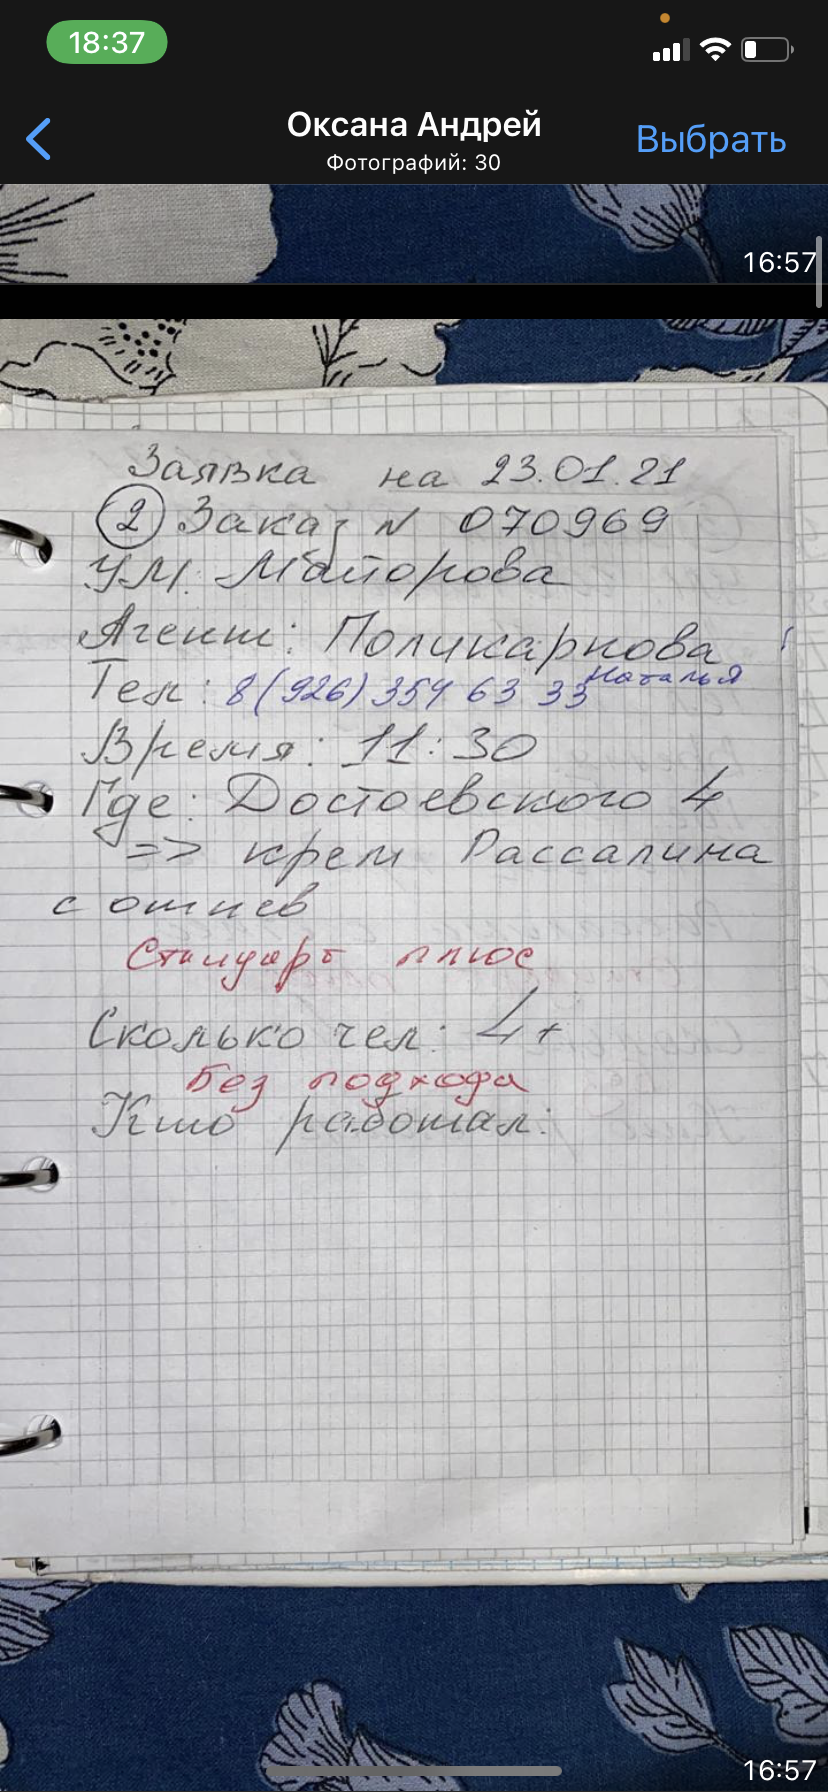 18:37
Оксана Андрей
Фотографий: 30
Выбрать
16:57
Заявка на 23.01.21
2 Заказ N 070969
УМ: Майорова
Агент: Поликарпова
Наталья
Тел: 8(926) 354 63 33
Время: 11:30
Где: Достоевского 4
=> крем Рассалина
с отпев
Стандарт плюс
Сколько чел: 4+
Без подхода
Кто работал:
16:57